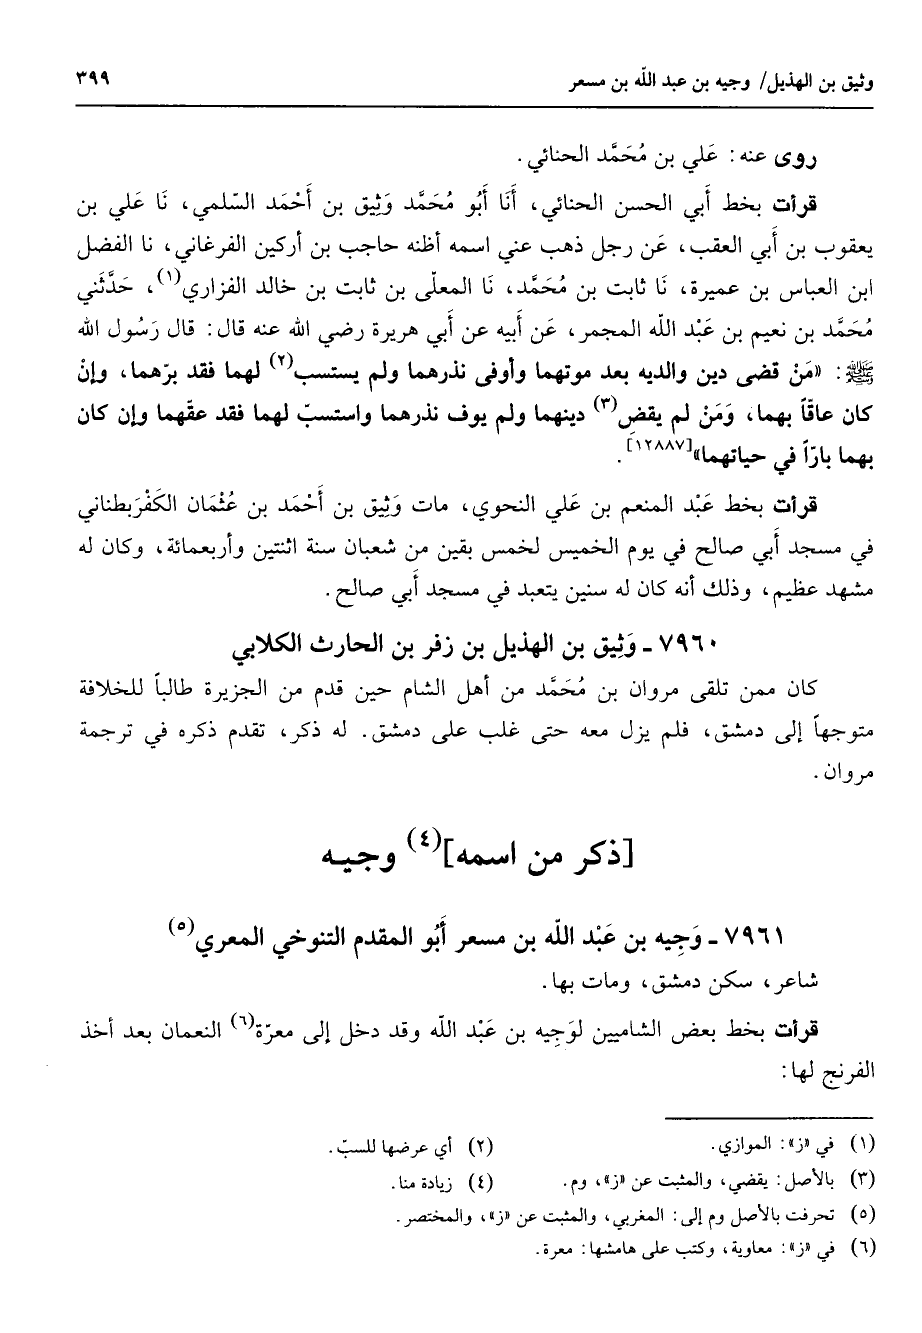 وثيق بن الهذيل/ وجيه بن عبد اللّه بن مسعر ٣٩٩
روى عنه: عَلي بن مُحَمَّد الحنائي.
قرأت بخط أبي الحسن الحنائي، أَنَا أَبُو مُحَمَّد وَثِيق بن أَحْمَد السّلمي، نَا عَلي بن
يعقوب بن أَبي العقب، عَن رجل ذهب عني اسمه أظنه حاجب بن أركين الفرغاني، نا الفضل
ابن العباس بن عميرة، نَا ثابت بن مُحَمَّد، نَا المعلّى بن ثابت بن خالد الفزاري(١)، حَدَّثَني
مُحَمَّد بن نعيم بن عَبْد اللّه المجمر، عَن أَبيه عن أَبي هريرة رضي الله عنه قال: قال رَسُول الله
ﷺ: «مَنْ قضى دين والديه بعد موتهما وأوفى نذرهما ولم يستسب(٢) لهما فقد برّهما، وإنْ
كان عاقاً بهما، وَمَنْ لم يقضِ(٣) دينهما ولم يوف نذرهما واستسبّ لهما فقد عقّهما وإن كان
بهما بارّاً في حياتهما»[١٢٨٨٧].
قرأت بخط عَبْد المنعم بن عَلي النحوي، مات وَثِيق بن أَحْمَد بن عُثْمَان الكَفْرَبطناني
في مسجد أَبي صالح في يوم الخميس لخمس بقين من شعبان سنة اثنتين وأربعمائة، وكان له
مشهد عظيم، وذلك أنه كان له سنين يتعبد في مسجد أَبي صالح.
٧٩٦٠ ـ وَثِيق بن الهذيل بن زفر بن الحارث الكلابي
كان ممن تلقى مروان بن مُحَمَّد من أهل الشام حين قدم من الجزيرة طالباً للخلافة
متوجهاً إلى دمشق، فلم يزل معه حتى غلب على دمشق. له ذكر، تقدم ذكره في ترجمة
مروان.
[ذكر من اسمه](٤) وجيه
٧٩٦١ ـ وَجِيه بن عَبْد اللّه بن مسعر أَبُو المقدم التنوخي المعري(٥)
شاعر، سكن دمشق، ومات بها.
قرأت بخط بعض الشاميين لوَجِيه بن عَبْد اللّه وقد دخل إلى معرّة(٦) النعمان بعد أخذ
الفرنج لها:
(١) في «ز»: الموازي. (٢) أي عرضها للسبّ.
(٣) بالأصل: يقضي، والمثبت عن «ز»، وم. (٤) زيادة منا.
(٥) تحرفت بالأصل وم إلى: المغربي، والمثبت عن «ز»، والمختصر.
(٦) في «ز»: معاوية، وكتب على هامشها: معرة.